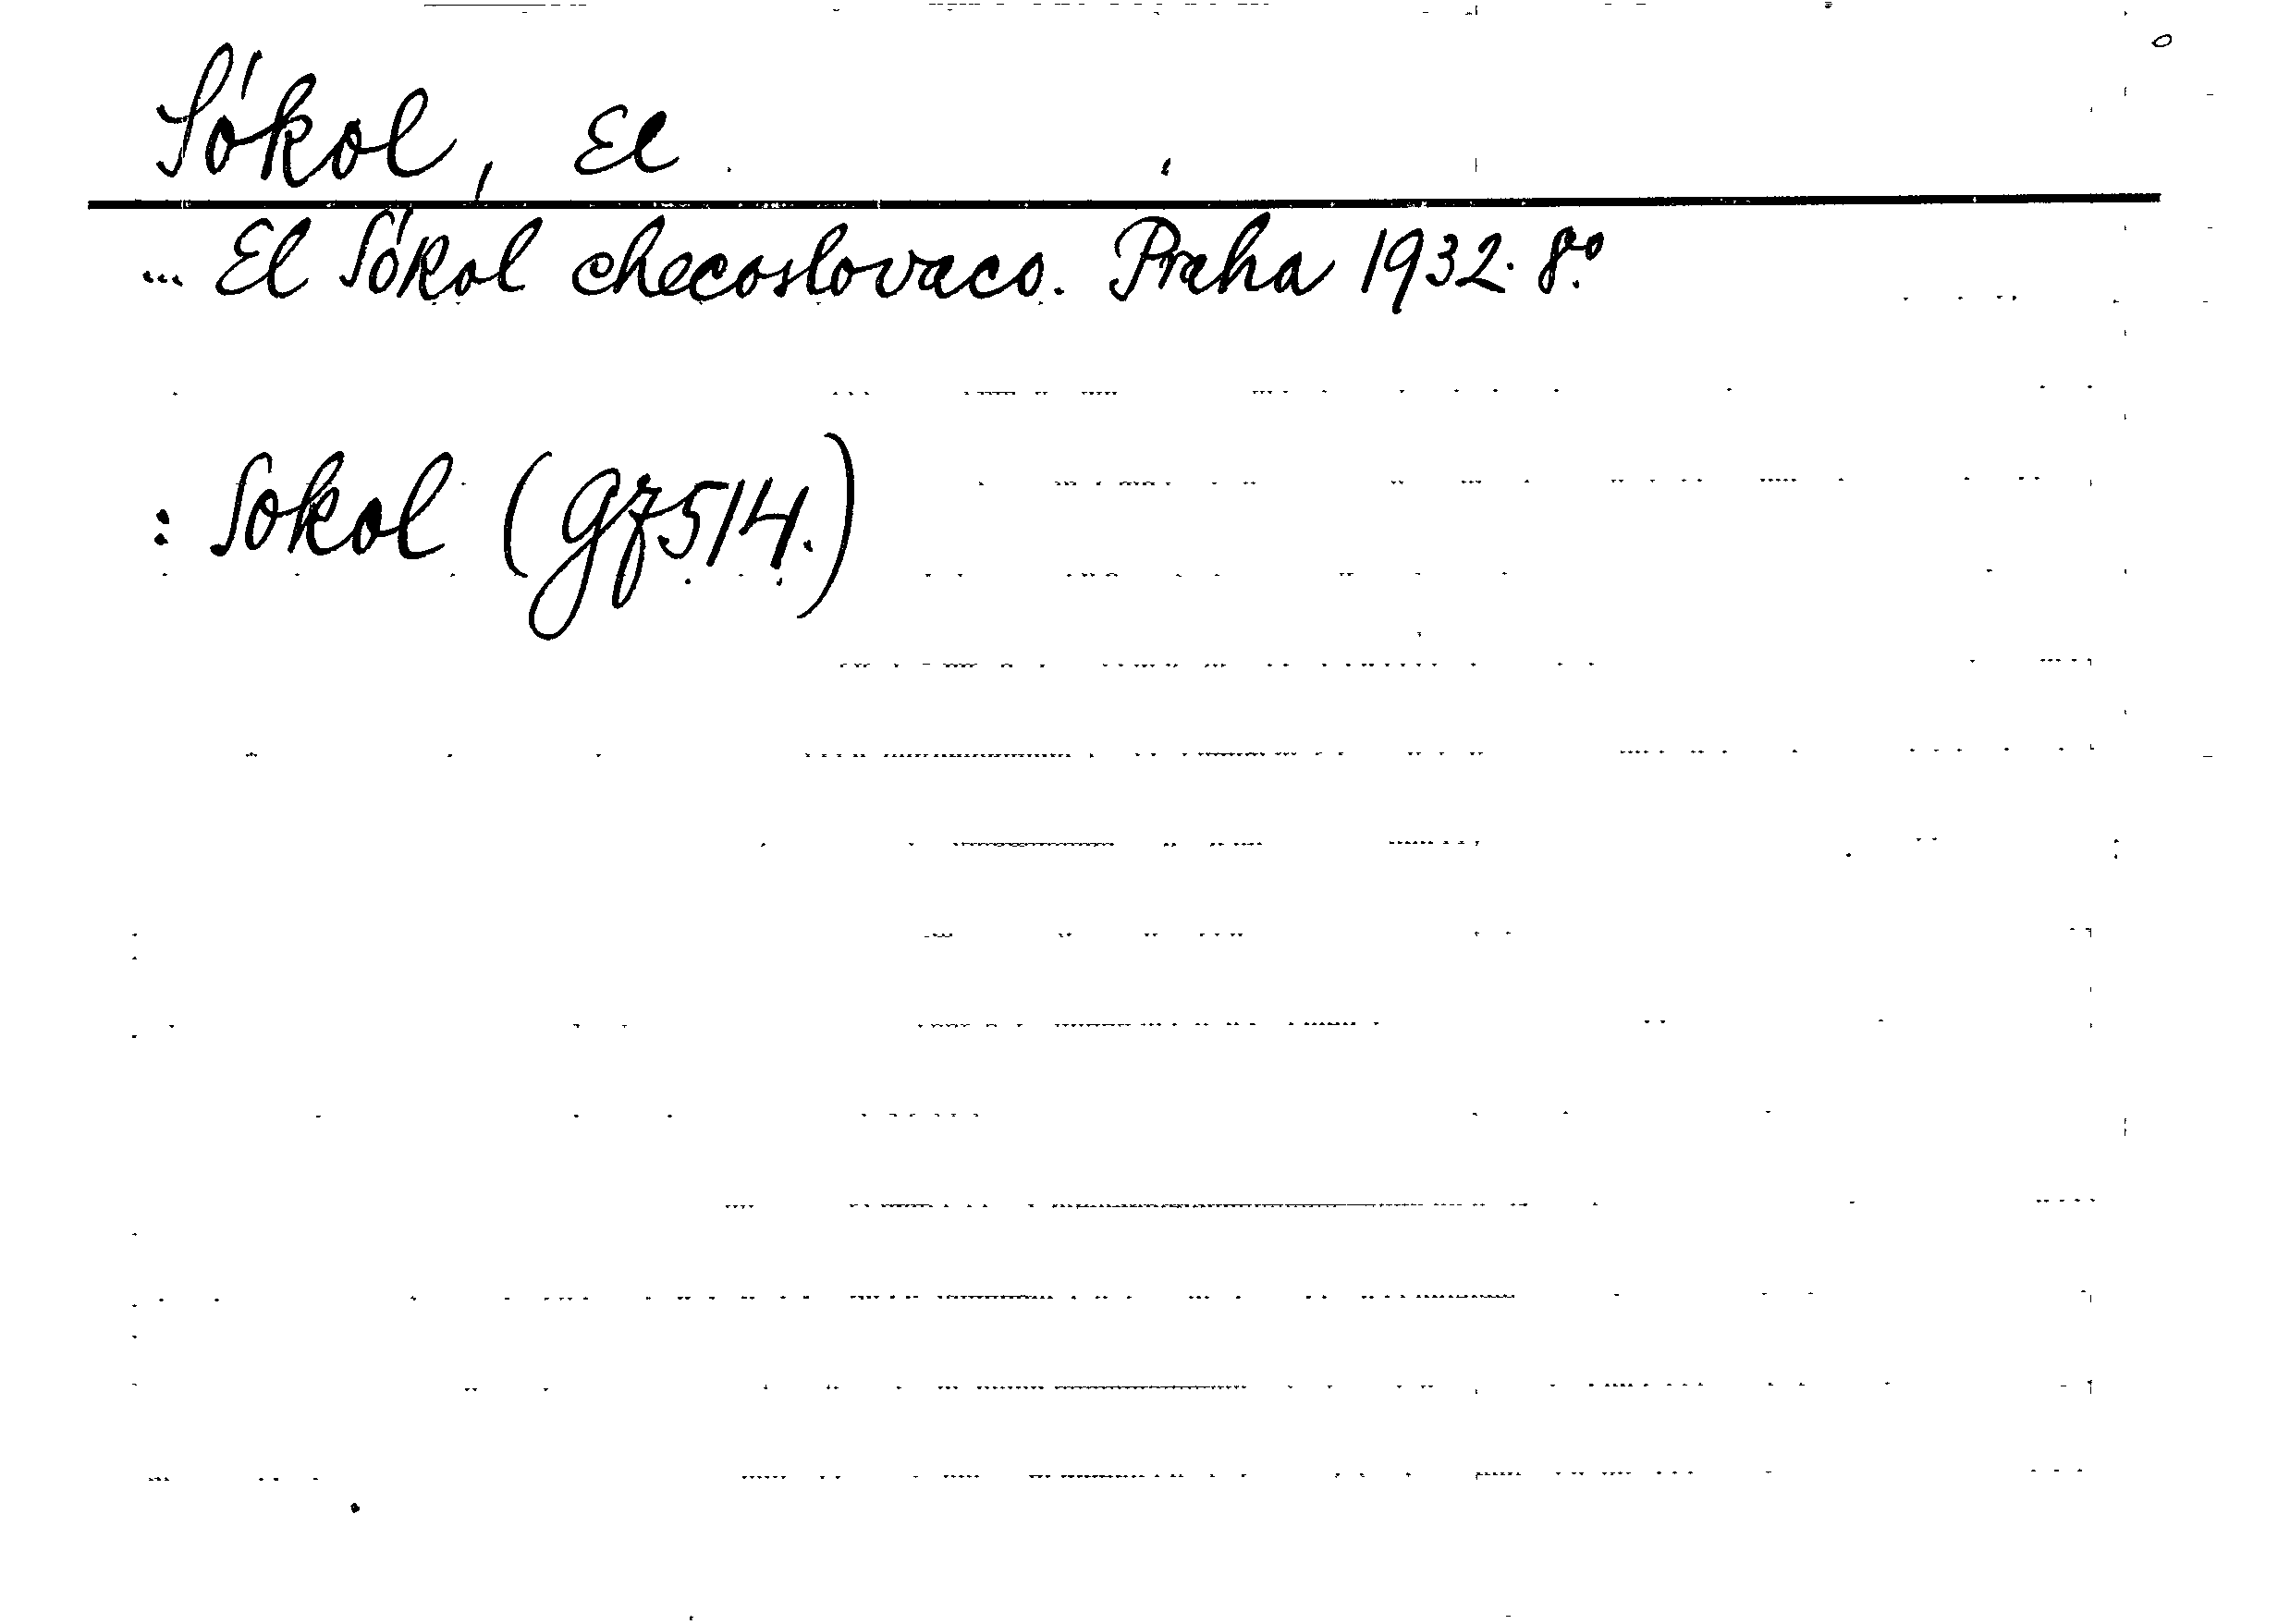 Sókol, El
... El Sókol checoslovaco. Praha 1932. 8.º
: Sokol (gz514.)